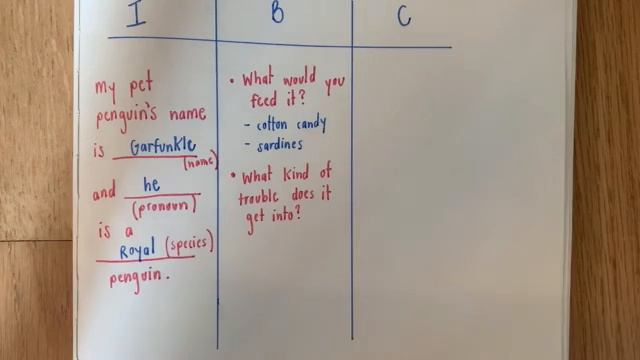 I
B
C
My pet
penguin's name
is Garfunkle
(name)
and he
(pronoun)
is a
Royal (species)
penguin.
• What would you
feed it?
- cotton candy
- sardines
• What kind of
trouble does it
get into?